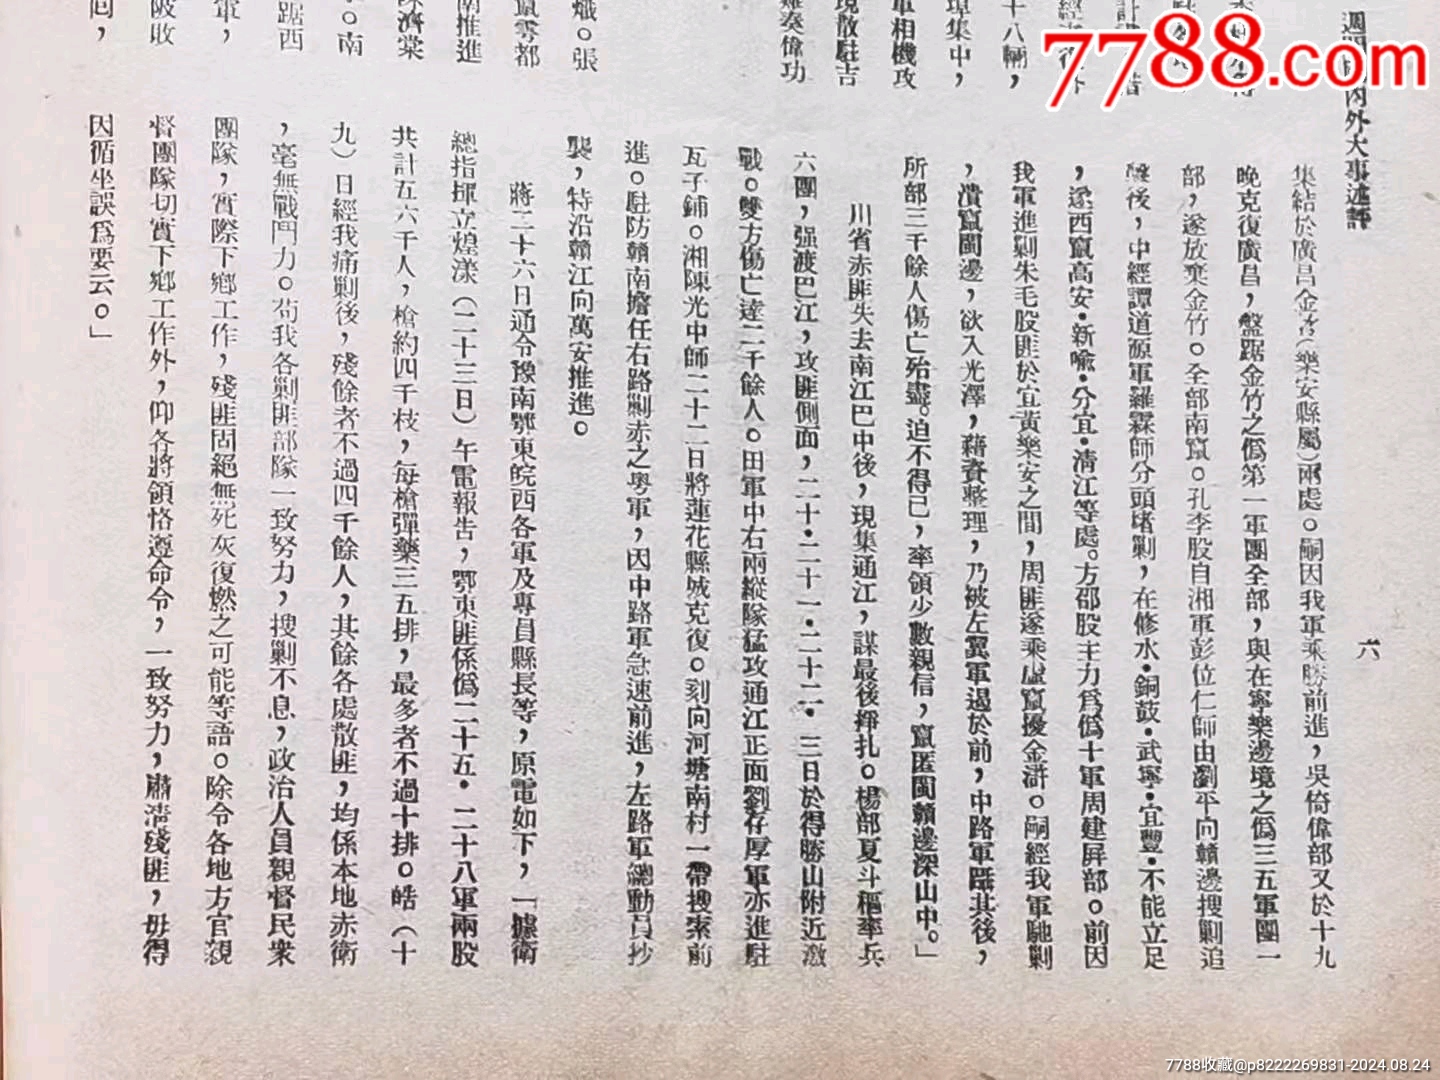 內外大事述評
六
集結於廣昌金谿(樂安縣屬)兩處。嗣因我軍乘勝前進，吳倚偉部又於十九
晚克復廣昌，盤踞金竹之僞第一軍團全部，與在寧樂邊境之僞三五軍團一
部，遂放棄金竹。全部南竄。孔李股自湘軍彭位仁師由瀏平向贛邊搜剿追
後，中經譚道源軍羅霖師分頭堵剿，在修水·銅鼓·武寧·宜豐·不能立足
，遂西竄高安·新喩·分宜·清江等處。方邵股主力爲僞十軍周建屏部。前因
我軍進剿朱毛股匪於宜黃樂安之間，周匪遂乘虛竄擾金滸。嗣經我軍馳剿
，潰竄閩邊，欲入光澤，藉資整理，乃被左翼軍遏於前，中路軍躡其後，
所部三千餘人傷亡殆盡。迫不得已，率領少數親信，竄匿閩贛邊深山中。」
川省赤匪失去南江巴中後，現集通江，謀最後掙扎。楊部夏斗樞率兵
六團，强渡巴江，攻匪側面，二十·二十一·二十二·三日於得勝山附近激
戰。雙方傷亡達二千餘人。田軍中右兩縱隊猛攻通江正面劉存厚軍亦進駐
瓦子鋪。湘陳光中師二十二日將蓮花縣城克復。刻向河塘南村一帶搜索前
進。駐防贛南擔任右路剿赤之粵軍，因中路軍急速前進，左路軍總動員抄
襲，特沿贛江向萬安推進。
蔣二十六日通令豫南鄂東皖西各軍及專員縣長等，原電如下，「據衛
總指揮立煌漾(二十三日)午電報告，鄂東匪係僞二十五·二十八軍兩股
共計五六千人，槍約四千枝，每槍彈藥三五排，最多者不過十排。皓(十
九)日經我痛剿後，殘餘者不過四千餘人，其餘各處散匪，均係本地赤衛
，毫無戰鬥力。苟我各剿匪部隊一致努力，搜剿不息，政治人員親督民衆
團隊，實際下鄉工作，殘匪固絕無死灰復燃之可能等語。除令各地方官親
督團隊切實下鄉工作外，仰各將領恪遵命令，一致努力，肅淸殘匪，毋得
因循坐誤爲要云。」
十八輛，
埠集中，
軍相機攻
境散駐吉
奏偉功
熾。張
竄雩都
南推進
濟棠
。南
踞西
軍，
7788.com
7788收藏@p8222269831-2024.08.24